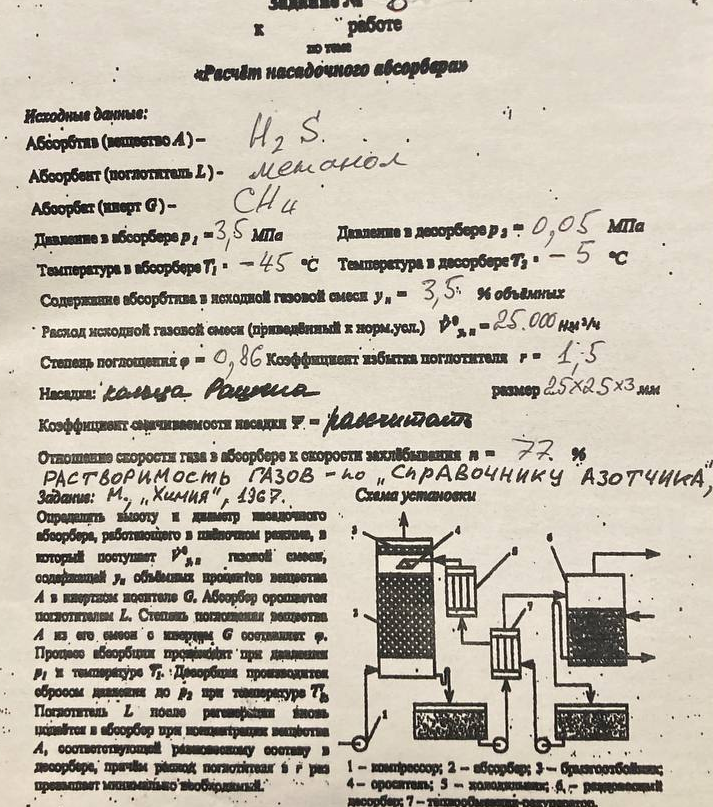 Задание №
к работе
по теме
«Расчёт насадочного абсорбера»
Исходные данные:
Абсорбтив (вещество A) – H₂S.
Абсорбент (поглотитель L) - метанол
Абсорбат (инерт G) – CH₄
Давление в абсорбере p₁ = 3,5 МПа Давление в десорбере p₂ = 0,05 МПа
Температура в абсорбере T₁ = -45 °C Температура в десорбере T₂ = - 5 °C
Содержание абсорбтива в исходной газовой смеси yₙ = 3,5 % объёмных
Расход исходной газовой смеси (приведённый к норм.усл.) = 25.000 нм³/ч
Степень поглощения φ = 0,86 Коэффициент избытка поглотителя r = 1,5
Насадка: кольца Рашига размер 25×25×3 мм
Коэффициент смачиваемости насадки Ψ = рассчитать
Отношение скорости газа в абсорбере к скорости захлёбывания n = 77 %
РАСТВОРИМОСТЬ ГАЗОВ – по „СПРАВОЧНИКУ АЗОТЧИКА",
Задание: М., „Химия", 1967. Схема установки
Определить высоту и диаметр насадочного
абсорбера, работающего в плёночном режиме, в
который поступает газовой смеси,
содержащей yₙ объёмных процентов вещества
A в инертном носителе G. Абсорбер орошается
поглотителем L. Степень поглощения вещества
A из его смеси с инертом G составляет φ.
Процесс абсорбции происходит при давлении
p₁ и температуре T₁. Десорбция производится
сбросом давления до p₂ при температуре T₂
Поглотитель L после регенерации вновь
подаётся в абсорбер при концентрации вещества
A, соответствующей равновесному составу в
десорбере, причём расход поглотителя в r раз
превышает минимально необходимый.
3 4 5 6
2 7
1
1 – компрессор; 2 – абсорбер; 3 – брызгоотбойник;
4 – ороситель; 5 – холодильник; 6 –
десорбер; 7 – теплообменник-рекуператор